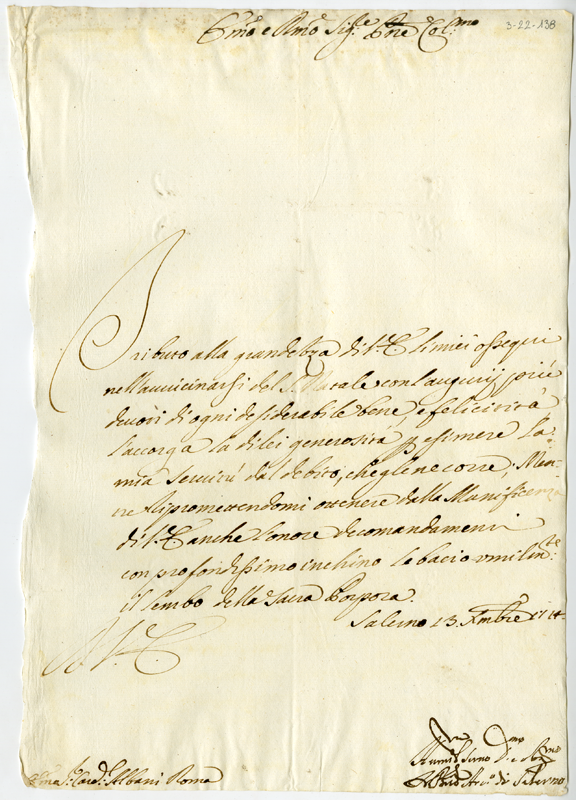 Em̃o e Rm̃o Sig.re Pñe Col.mo
3-22-138
Tributo alla grandezza di V.E. li miei ossequi
nell'auuicinarsi del S. Natale con l'augurij più
deuoti di ogni desiderabile bene, e felicità
l'accorga la di lei generosità p esimere la
mia seruitù dal debito, che gle ne corre, Men-
tre ripromettendomi ottenere dalla Munificenza
di V.E. anche l'onore de comandamenti
con profondissimo inchino le bacio vmilm.te
il lembo della Sacra Porpora.
Salerno 13. Xmbre 1714
D. V. E.
Em̃o S.r Card.le Albani Roma
Vmilissimo D.mo e Obl.mo
Arciu.o di Salerno